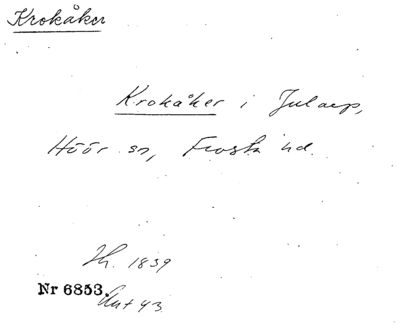 Krokåker
Krokåker i Jularp,
Höör sn, Frosta hd.
1839
Nr 6853.
43